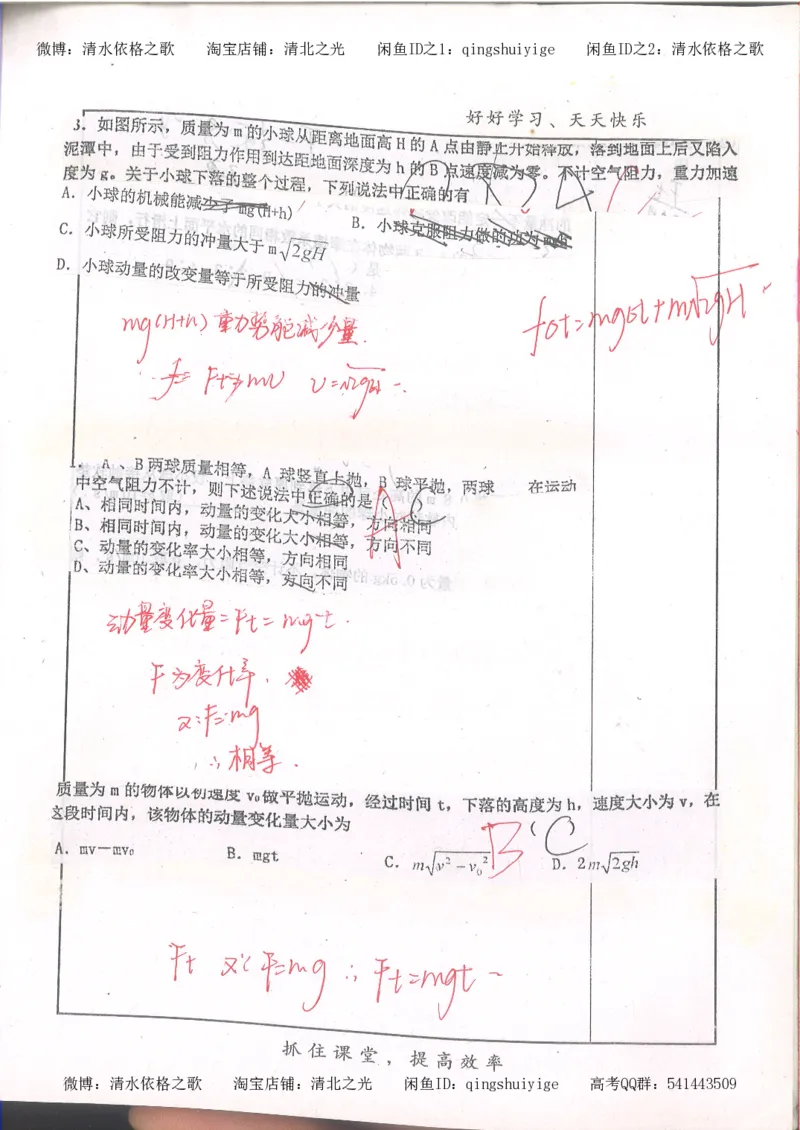 微博：清水依格之歌 淘宝店铺：清北之光 闲鱼ID之1：qingshuiyige 闲鱼ID之2：清水依格之歌
好好学习、天天快乐
3. 如图所示，质量为m的小球从距离地面高H的A点由静止开始释放，落到地面上后又陷入
泥潭中，由于受到阻力作用到达距地面深度为h的B点速度减为零。不计空气阻力，重力加速
度为g。关于小球下落的整个过程，下列说法中正确的有
A. 小球的机械能减少了mg(H+h)
B. 小球克服阻力做的功为
C. 小球所受阻力的冲量大于m√2gH
D. 小球动量的改变量等于所受阻力的冲量
fot=mgot+m√2gH
mg(H+h) 重力势能减少量.
Ft=mv v=√2gH
A、B两球质量相等，A球竖直上抛，B球平抛，两球 在运动
中空气阻力不计，则下述说法中正确的是
A、相同时间内，动量的变化大小相等，方向相同
B、相同时间内，动量的变化大小相等，方向不同
C、动量的变化率大小相等，方向相同
D、动量的变化率大小相等，方向不同
A
动量变化量=Ft=mgt.
F为变化率.
又:F=mg
∴相等.
质量为m的物体以初速度v₀做平抛运动，经过时间t，下落的高度为h，速度大小为v，在
这段时间内，该物体的动量变化量大小为
B C
A. mv－mv₀ B. mgt C. m√v²－v₀² D. 2m√2gh
Ft 又∵F=mg ∴Ft=mgt
抓住课堂，提高效率
微博：清水依格之歌 淘宝店铺：清北之光 闲鱼ID：qingshuiyige 高考QQ群：541443509